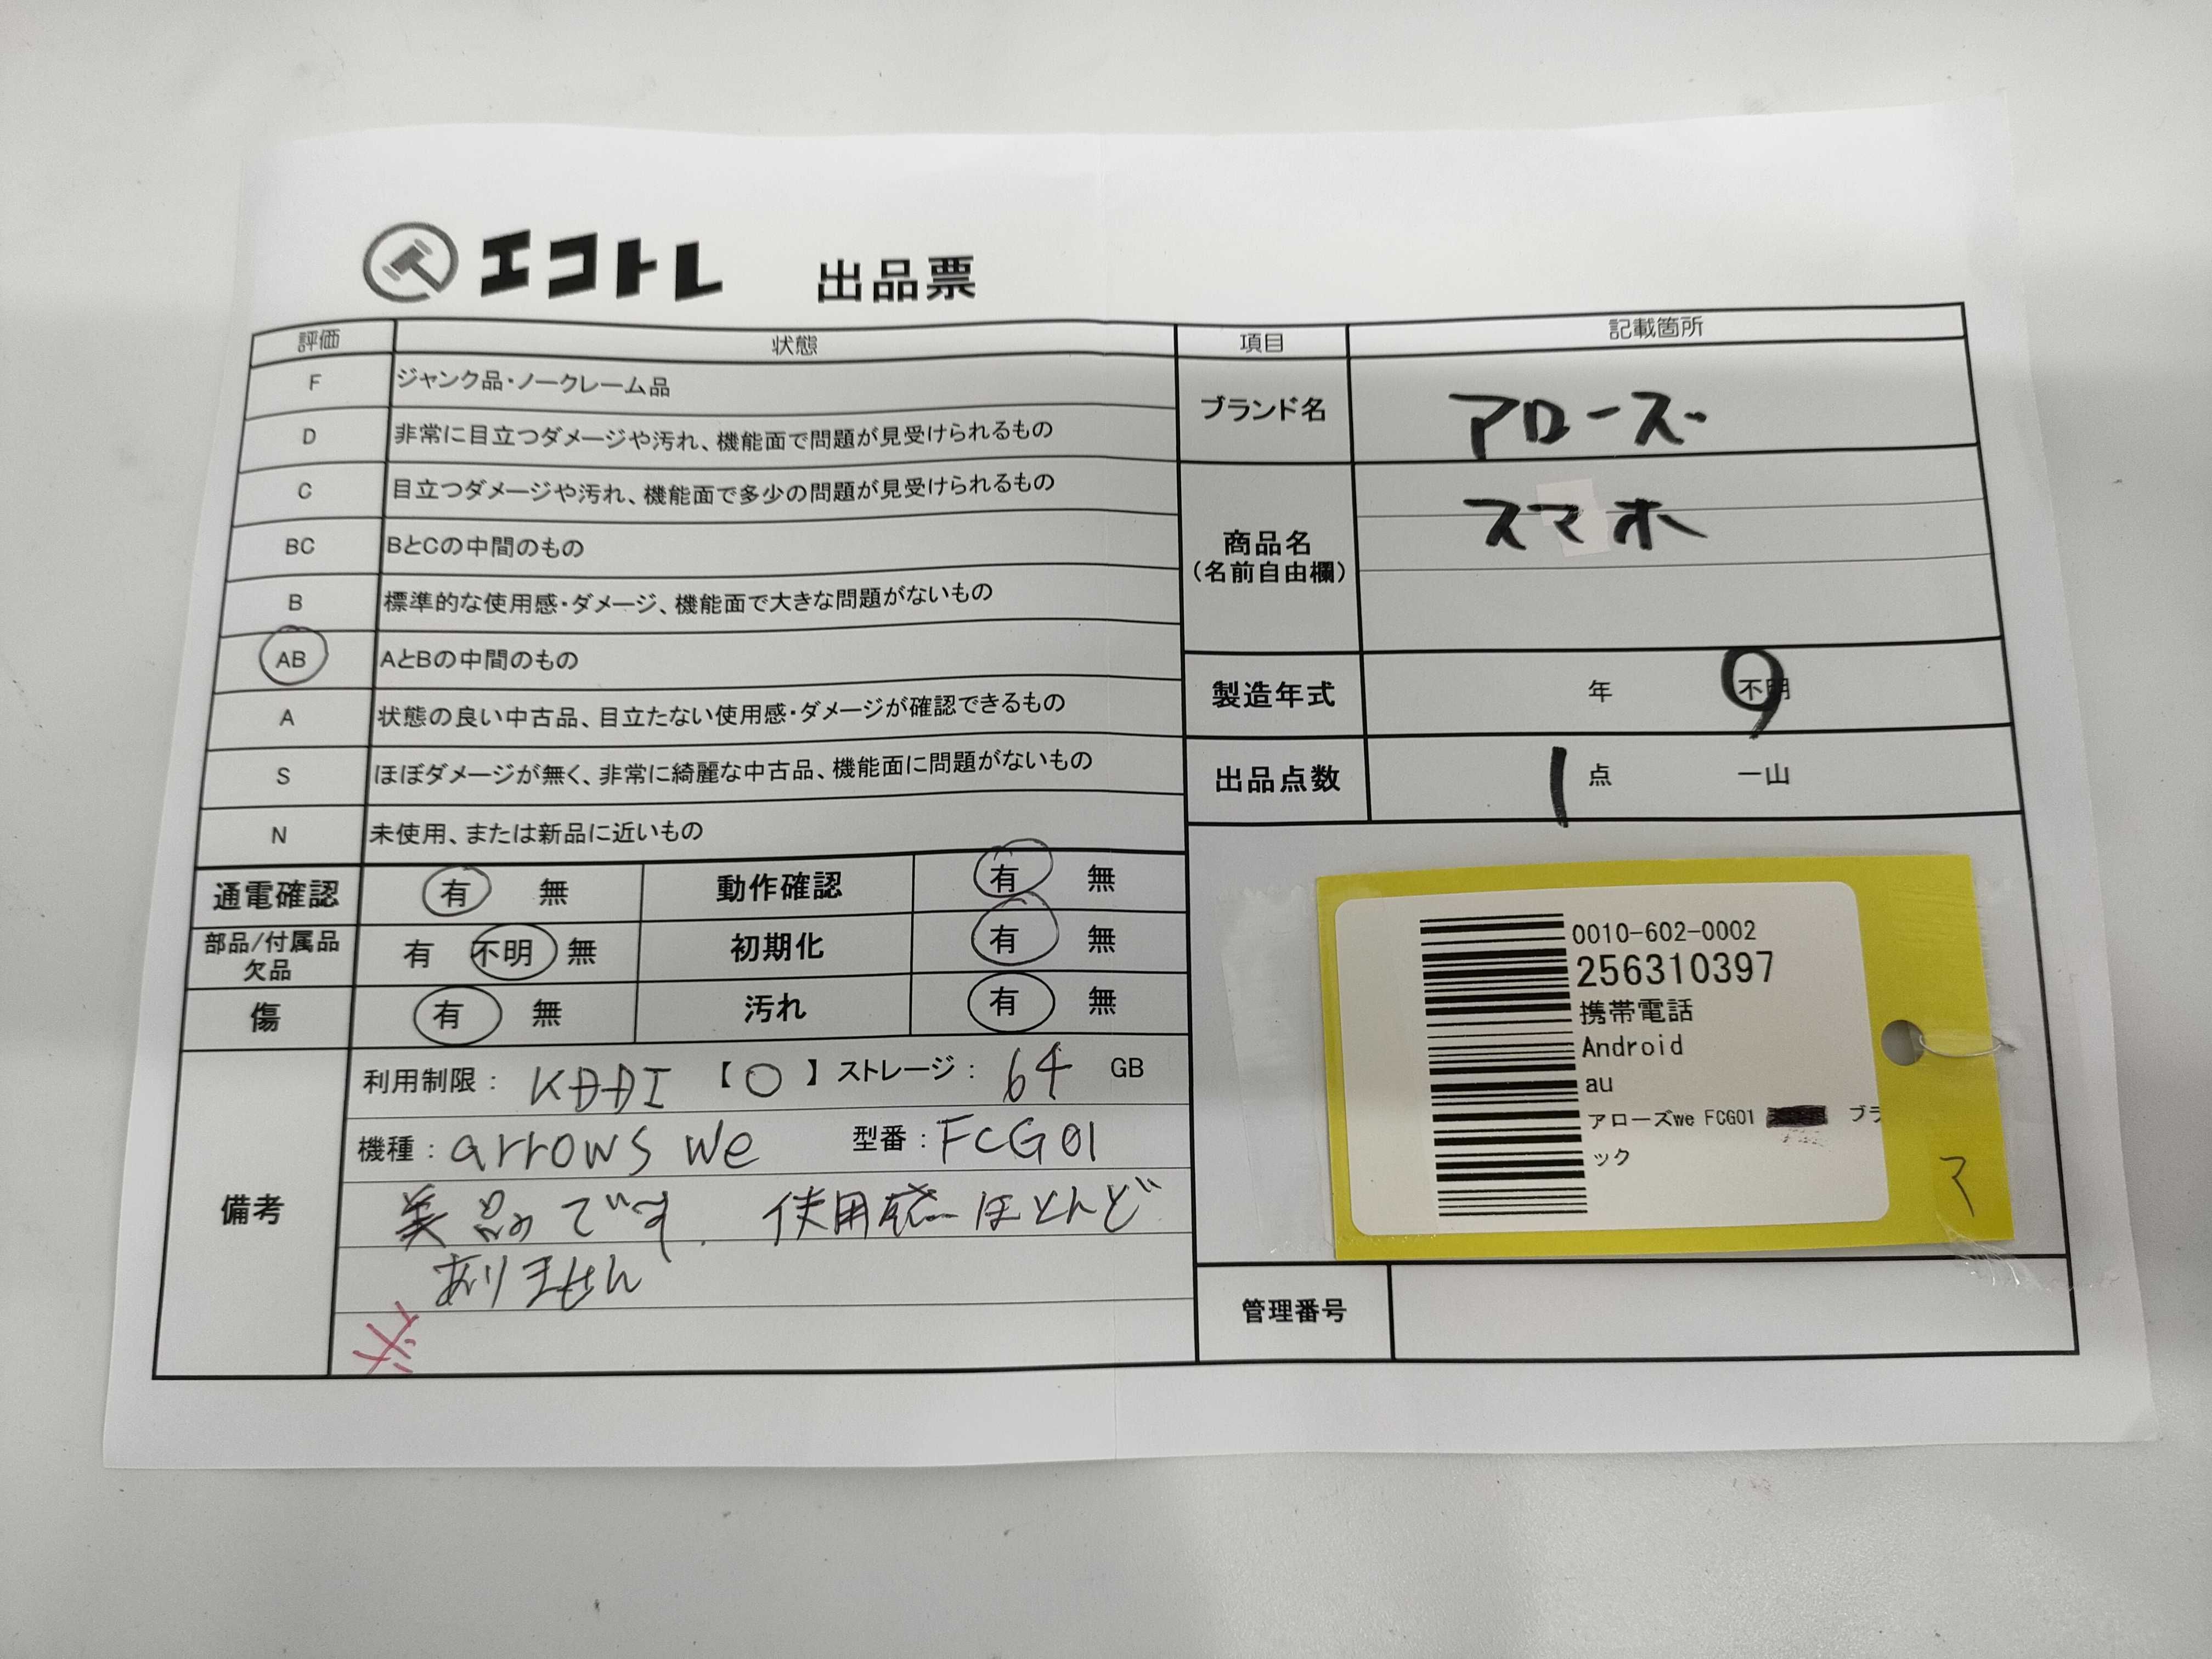 エコトレ 出品票
評価 状態 項目 記載箇所
F ジャンク品・ノークレーム品
D 非常に目立つダメージや汚れ、機能面で問題が見受けられるもの
C 目立つダメージや汚れ、機能面で多少の問題が見受けられるもの
BC BとCの中間のもの
B 標準的な使用感・ダメージ、機能面で大きな問題がないもの
AB AとBの中間のもの
A 状態の良い中古品、目立たない使用感・ダメージが確認できるもの
S ほぼダメージが無く、非常に綺麗な中古品、機能面に問題がないもの
N 未使用、または新品に近いもの
ブランド名 アローズ
商品名 スマホ
(名前自由欄)
製造年式 年 不明
出品点数 1 点 一山
通電確認 有 無 動作確認 有 無
部品/付属品
欠品 有 不明 無 初期化 有 無
傷 有 無 汚れ 有 無
備考
利用制限: KDDI 【○】 ストレージ: 64 GB
機種: arrows We 型番: FCG01
美品です. 使用感ほとんど
ありません
0010-602-0002
256310397
携帯電話
Android
au
アローズwe FCG01 ブラ
ック
管理番号